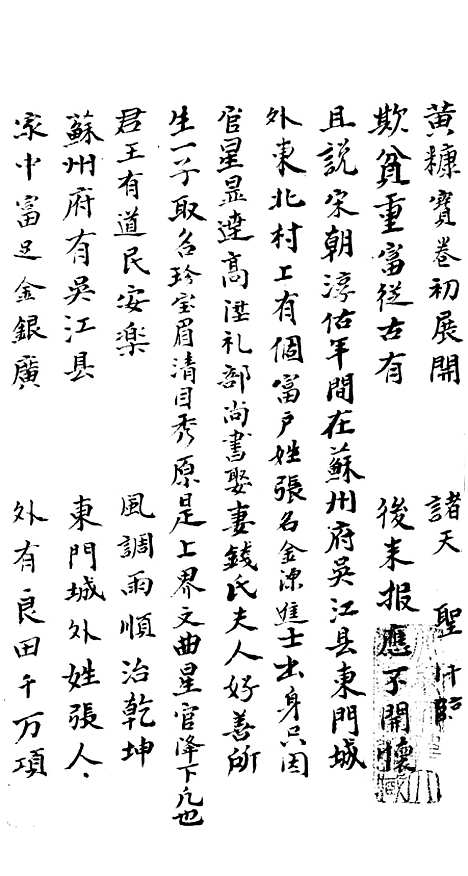 黄糠寳卷初展開　諸天　聖
欺貧重富從古有　後来报應不開懷
且説宋朝淳佑年間在蘇州府吴江县東門城
外東北村上有個富户姓張名金深進士出身只因
官星显達高陞礼部尚書娶妻錢氏夫人好善所
生一子取名珍宝眉清目秀原是上界文曲星官降下凢也
君王有道民安樂　風調雨順治乾坤
蘇州府有吴江县　東門城外姓張人
家中富足金銀廣　外有良田千万項